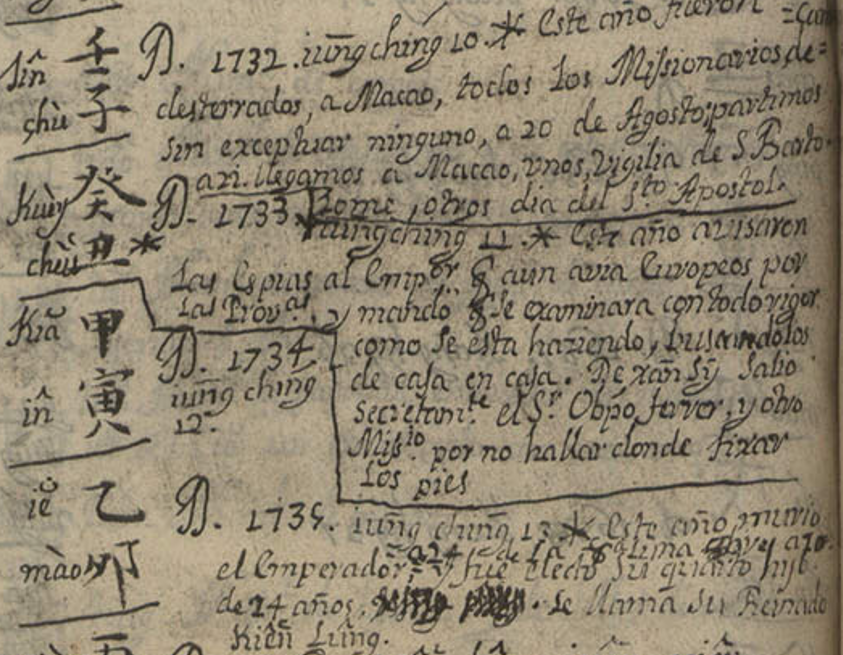 壬子
lîn
çhù
D. 1732. iūng ching 10. * Este año fueron
desterrados, a Macao, todos los Missionarios, de=
sin exceptuar ninguno, a 20 de Agosto, partimos
llegamos a Macao, vnos, Vigilia de S. Barto-
lome, otros dia del S.to Apostol.
癸丑 *
kuèy
cheù
D. 1733
iūng ching 11. * Este año avisaron
las Espias al Emp.or q̃ aun avia Europeos por
las Prov.as, y mandó q̃ se examinara con todo rigor
como se esta haziendo, buscandolos
de casa en casa. De xān sȳ salio
secretam.te el S.r Obpo ferrer, y otro
Miss.io por no hallar donde fixar
los pies
甲寅
kiă
în
D. 1734
iūng ching
12.
乙卯
iĕ
mào
D. 1735. iūng ching 13 * Este año murio
el Emperador, fue electo su quarto hijo
de 24 años, se llama su Reinado
Kiên Lûng.